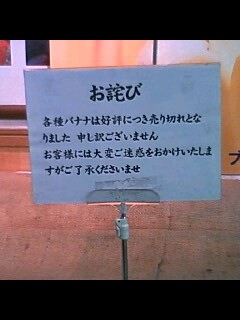 お詫び
各種バナナは好評につき売り切れとな
りました 申し訳ございません
お客様には大変ご迷惑をおかけいたしま
すがご了承くださいませ